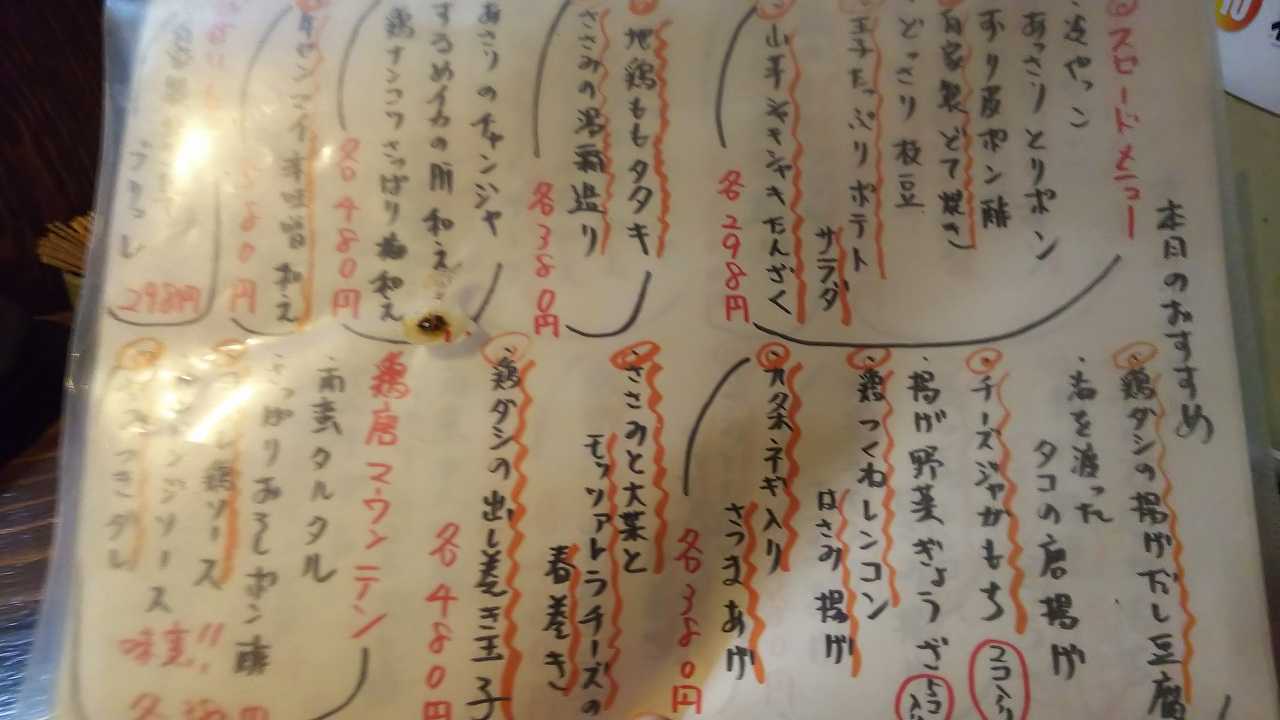 本日のおすすめ
スピードメニュー
・冷やっこ
あっさりとりポン
ずり皮ポン酢
自家製どて焼き
・どっさり枝豆
玉子たっぷりポテト
サラダ
・山芋シャキシャキたんざく
各298円
・地鶏ももタタキ
ささみの湯霜造り
各380円
あさりのチャンジャ
するめイカの肝和え
鶏ナンコツさっぱり梅和え
各480円
辛味噌和え
580円
298円
・鶏ダシの揚げだし豆腐
・海を渡った
タコの唐揚げ
・チーズジャガもち
2コ入り
・揚げ野菜ぎょうざ
5コ入り
・鶏つくねレンコン
はさみ揚げ
・九条ネギ入り
さつまあげ
各380円
・ささみと大葉と
モッツァレラチーズの
春巻き
・鶏ダシの出し巻き玉子
各480円
鶏唐マウンテン
南蛮タルタル
さっぱりおろしポン酢
鶏ソース
ソース